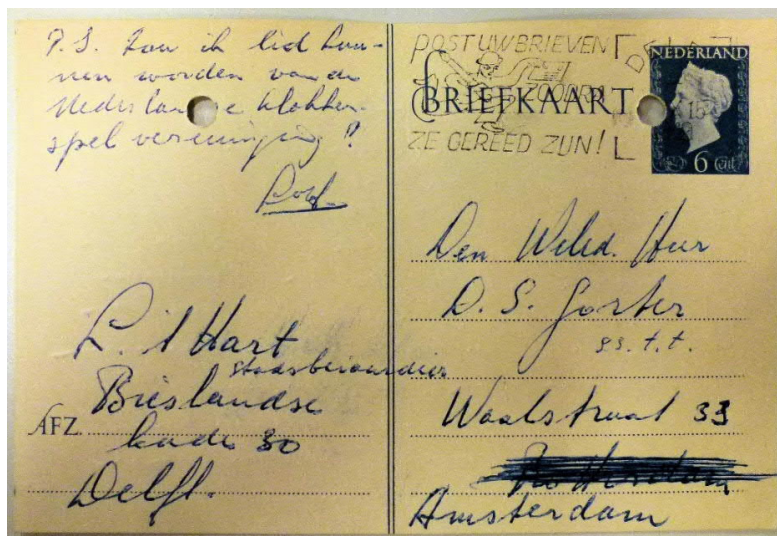 P.S. Zou ik lid kun-
nen worden van de
Nederlandse klokken-
spel vereniging?
L. 't Hart
Stadsbeiaardier
Bieslandse
AFZ. kade 30
Delft.
POST UW BRIEVEN
ZOODRA
ZE GEREED ZIJN!
BRIEFKAART
NEDERLAND
6 Cent
Den Weled. Heer
D. S. Gorter
Waalstraat 33
Rotterdam
Amsterdam